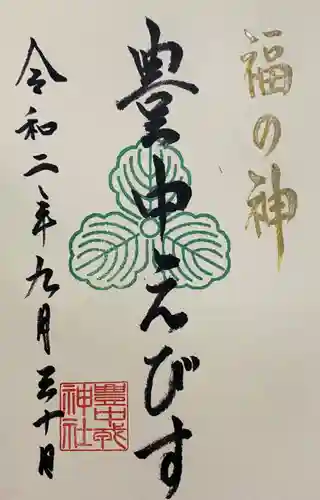 福の神
豊中えびす
令和二年九月三十月
豊中戎
神社